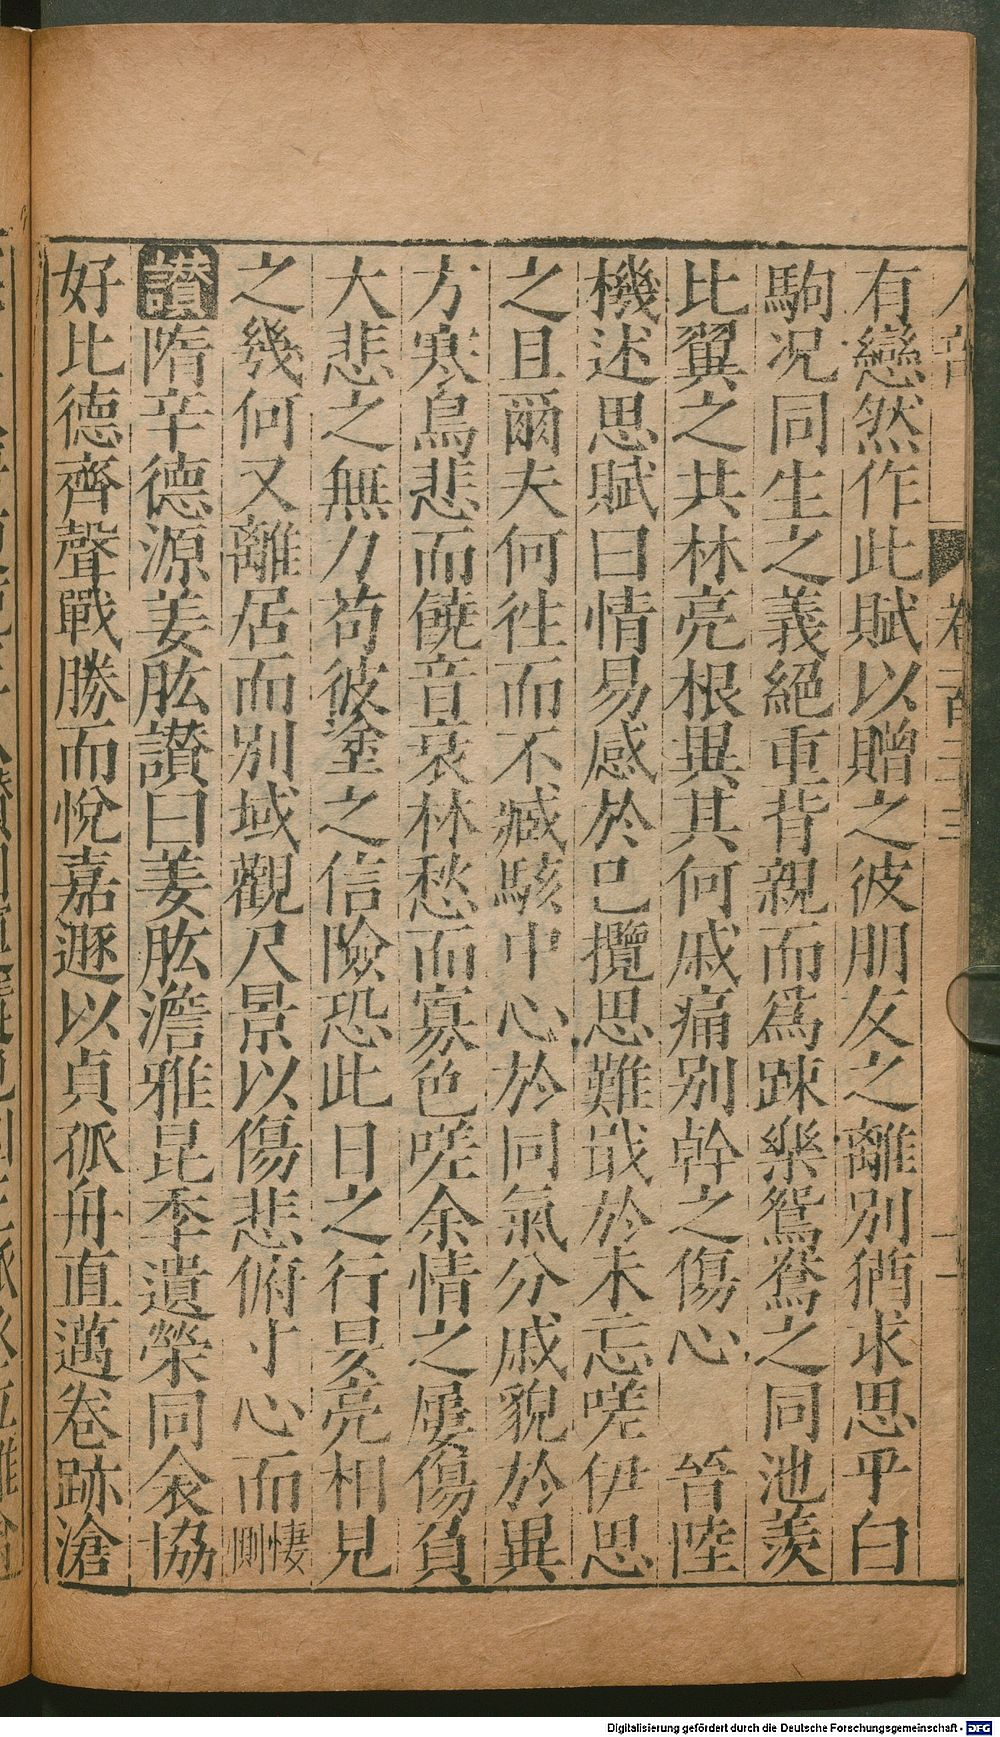 有戀然作此賦以贈之彼朋友之離別猶求思乎白
駒况同生之義絕重背親而爲踈樂鴛鴦之同池羨
比翼之共林亮根異其何戚痛別幹之傷心 晉陸
機述思賦曰情易感於已攬思難戢於未忘嗟伊思
之且爾夫何徃而不臧駭中心於同氣分戚貌於異
方寒鳥悲而饒音衰林愁而寡色嗟余情之屢傷負
大悲之無力苟彼塗之信險恐此日之行昃亮相見
之幾何又離居而別域觀尺景以傷悲俯寸心而悽惻
讃隋辛德源姜肱讃曰姜肱澹雅昆季遺榮同衾協
好比德齊聲戰勝而悅嘉遯以貞孤舟直邁卷跡滄
Digitalisierung gefördert durch die Deutsche Forschungsgemeinschaft - DFG